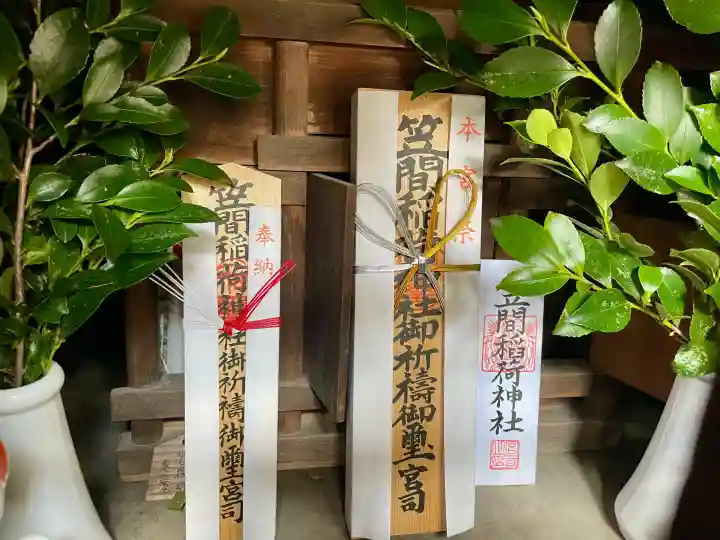 奉納
笠間稲荷神社御祈禱御璽宮司
本宮祭
笠間稲荷神社御祈禱御璽宮司
笠間稲荷神社